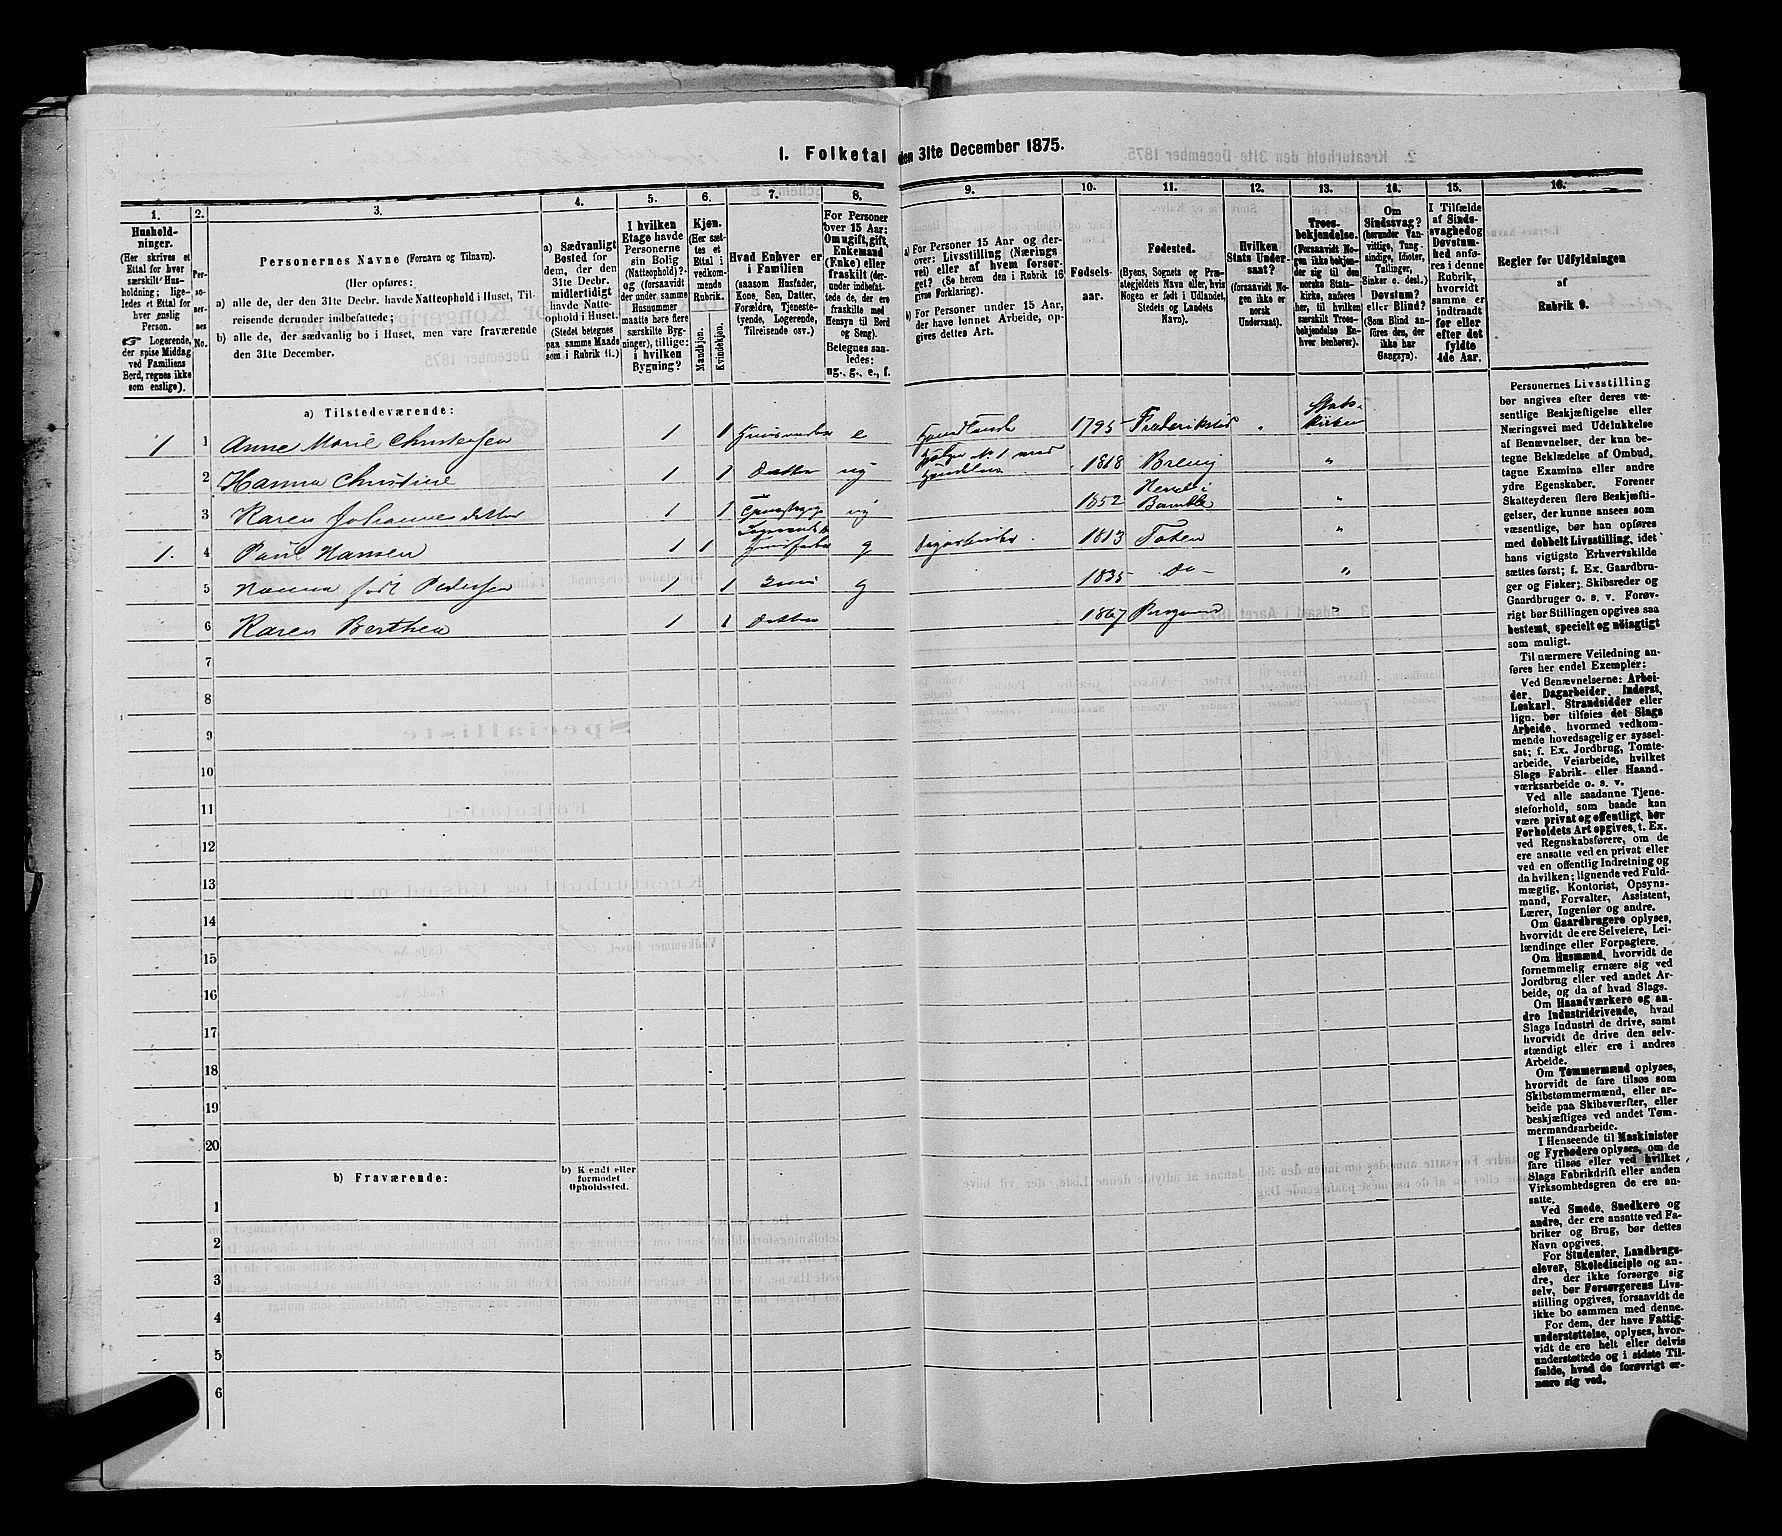 1. Folketal den 31te December 1875.
1.
Hushold-
ninger.
(Her skrives et
Ettal for hver
særskilt Hus-
holdning; lige-
ledes et Ettal for
hver enslig
Person.
Logerende,
der spise Middag
ved Familiens
Bord, regnes ikke
som enslige).
2.
Per-
so-
ner-
nes
No.
3.
Personernes Navne (Fornavn og Tilnavn).
(Her opføres:
a) alle de, der den 31te Decbr. havde Natteophold i Huset, Til-
reisende derunder indbefattede;
b) alle de, der sædvanlig bo i Huset, men vare fraværende
den 31te December.
4.
a) Sædvanligt
Bosted for
dem, der den
31te Decbr.
midlertidigt
havde Natte-
ophold i Huset.
(Stedet betegnes
paa samme Maade
som i Rubrik 11.)
5.
I hvilken
Etage havde
Personerne
sin Bolig
(Natteophold)?-
(forsaavidt
der under samme
Husnummer
maatte høre flere
særskilte Byg-
ninger), tillige:
i hvilken
Bygning?
6.
Kjøn.
(Her sæt-
tes et
Ettal i
vedkom-
mende
Rubrik.
Mandkjøn.
Kvindekjøn.
7.
Hvad Enhver er
i Familien
(saasom Husfader,
Kone, Søn, Datter,
Forældre, Tjeneste-
tyende, Logerende,
Tilreisende osv.)
8.
For Personer
over 15 Aar:
Om ugift, gift,
Enkemand
(Enke) eller
fraskilt (der-
under indbefat-
tede de, der ere
fraskilte med
Hensyn til Bord
og Seng).
Betegnes saa-
ledes:
ug., g., e., f.
9.
a) For Personer 15 Aar og der-
over: Livsstilling (Nærings
vei) eller af hvem forsør-
get? (Se herom den i Rubrik 16
givne Forklaring).
b) For Personer under 15 Aar,
der have lønnet Arbeide, op-
gives dettes Art.
10.
Fødsels-
aar.
11.
Fødested.
(Byens, Sognets og Præ-
stegjeldets Navn eller, hvis
Nogen er født i Udlandet,
Stedets og Landets
Navn).
12.
Hvilken
Stats Under-
saat?
(forsaavidt No-
gen ikke er
norsk
Undersaat).
13.
Troes-
bekjendelse.
(Forsaavidt No-
gen ikke beken-
der sig til den
norske Stats-
kirke, anføres
her, til hvilken
særskilt Troes-
bekjendelse En-
hver henhører).
14.
Om
Sindssvag?
(herunder Van-
vittige, Tung-
sindige, Idioter,
Tullinger,
Sinker o. desl.)
Døvstum?
eller Blind?
(Som Blind an-
føres den, der
ikke har
Gangsyn).
15.
I Tilfælde
af Sinds-
svaghed og
Døvstum-
hed anfø-
res i denne
Rubrik,
hvorvidt
samme er
indtraadt
før eller
efter det
fyldte
4de Aar.
16.
Regler for Udfyldningen
af
Rubrik 9.
a) Tilstedeværende:
1 1 Anne Marie Christensen 1 1 e 1795 Stats-
kirken
2 Hanna Christine 1 1 Datter ug 1818 Brevig "
3 Karen Johannesdatter 1 1 ug 1852 Bamble "
1. 4 Paul Hansen 1 1 Husfader g Dagarbeider 1813 Toten "
5 Hanna født Pedersen 1 1 Kone g 1835 Do "
6 Karen Berthea 1 1 Datter 1867 "
7
8
9
10
11
12
13
14
15
16
17
18
19
20
b) Fraværende:
b) Kjendt eller
formodet
Opholdssted.
1
2
3
4
5
6
Personernes Livsstilling
bør angives efter deres væ-
sentlige Beskjæftigelse eller
Næringsvei med Udelukkelse
af Benævnelser, der kun be-
tegne Beklædelse af Ombud,
tagne Examina eller andre
ydre Egenskaber. Forener
Skatteyderen flere Beskjæfti-
gelser, der kunne ansees som
væsentlige, bør han opføres
med dobbelt Livsstilling, idet
hans vigtigste Erhvervskilde
sættes først; f. Ex. Gaardbru-
ger og Fisker; Skibsreder og
Gaardbruger o. s. v. Forøv-
rigt bør Stillingen opgives saa
bestemt, specielt og nøiagtigt
som muligt.
Til nærmere Veiledning an-
føres her endel Exempler:
Ved Benævnelserne: Arbei-
der, Dagarbeider, Inderst,
Løskarl, Strandsidder eller
lign. bør tilføies det Slags
Arbeide, hvormed vedkom-
mende hovedsagelig er syssel-
sat; f. Ex. Jordbrug, Tomte-
arbeide, Veiarbeide, hvilket
Slags Fabrik- eller Haand-
værksarbeide o. s. v.
Ved alle saadanne Tjene-
steforhold, som baade kan
være privat og offentligt, bør
Forholdets Art opgives, t. Ex.
ved Regnskabsførere, om de
ere ansatte ved en privat eller
ved en offentlig Indretning og
da hvilken; lignende ved Fuld-
mægtig, Kontorist, Opsyns-
mand, Forvalter, Assistent,
Lærer, Ingeniør og andre.
Om Gaardbrugere oplyses,
hvorvidt de ere Selveiere, Lei-
lændinge eller Forpagtere.
Om Husmænd, hvorvidt de
fornemmelig ernære sig ved
Jordbrug eller ved andet Ar-
beide, og da af hvad Slags.
Om Haandværkere og an-
dre Industridrivende, hvad
Slags Industri de drive, samt
hvorvidt de drive den selv-
stændigt eller ere i andres
Arbeide.
Om Tømmermænd oplyses,
hvorvidt de fare tilsøs som
Skibstømmermænd, eller ar-
beide paa Skibsværfter, eller
beskjæftiges ved andet Tøm-
mermandsarbeide.
I Henseende til Maskinister
og Fyrbødere oplyses, om de
fare tilsøs eller ved hvilket
Slags Fabrikdrift eller anden
Virksomhedsgren de ere an-
satte.
Ved Smede, Snedkere og
andre, der ere ansatte ved Fa-
briker og Brug, bør dettes
Navn opgives.
For Studenter, Landbrugs-
elever, Skoledisciple og an-
dre, der ikke forsørge sig
selv, bør Forsørgerens Livs-
stilling opgives, forsaavidt de
ikke bo sammen med denne.
For dem, der have Fattig-
understøttelse, oplyses, hvor-
vidt de ere helt eller delvis
understøttede og i sidste Til-
fælde, hvad de forøvrigt er-
nære sig ved.